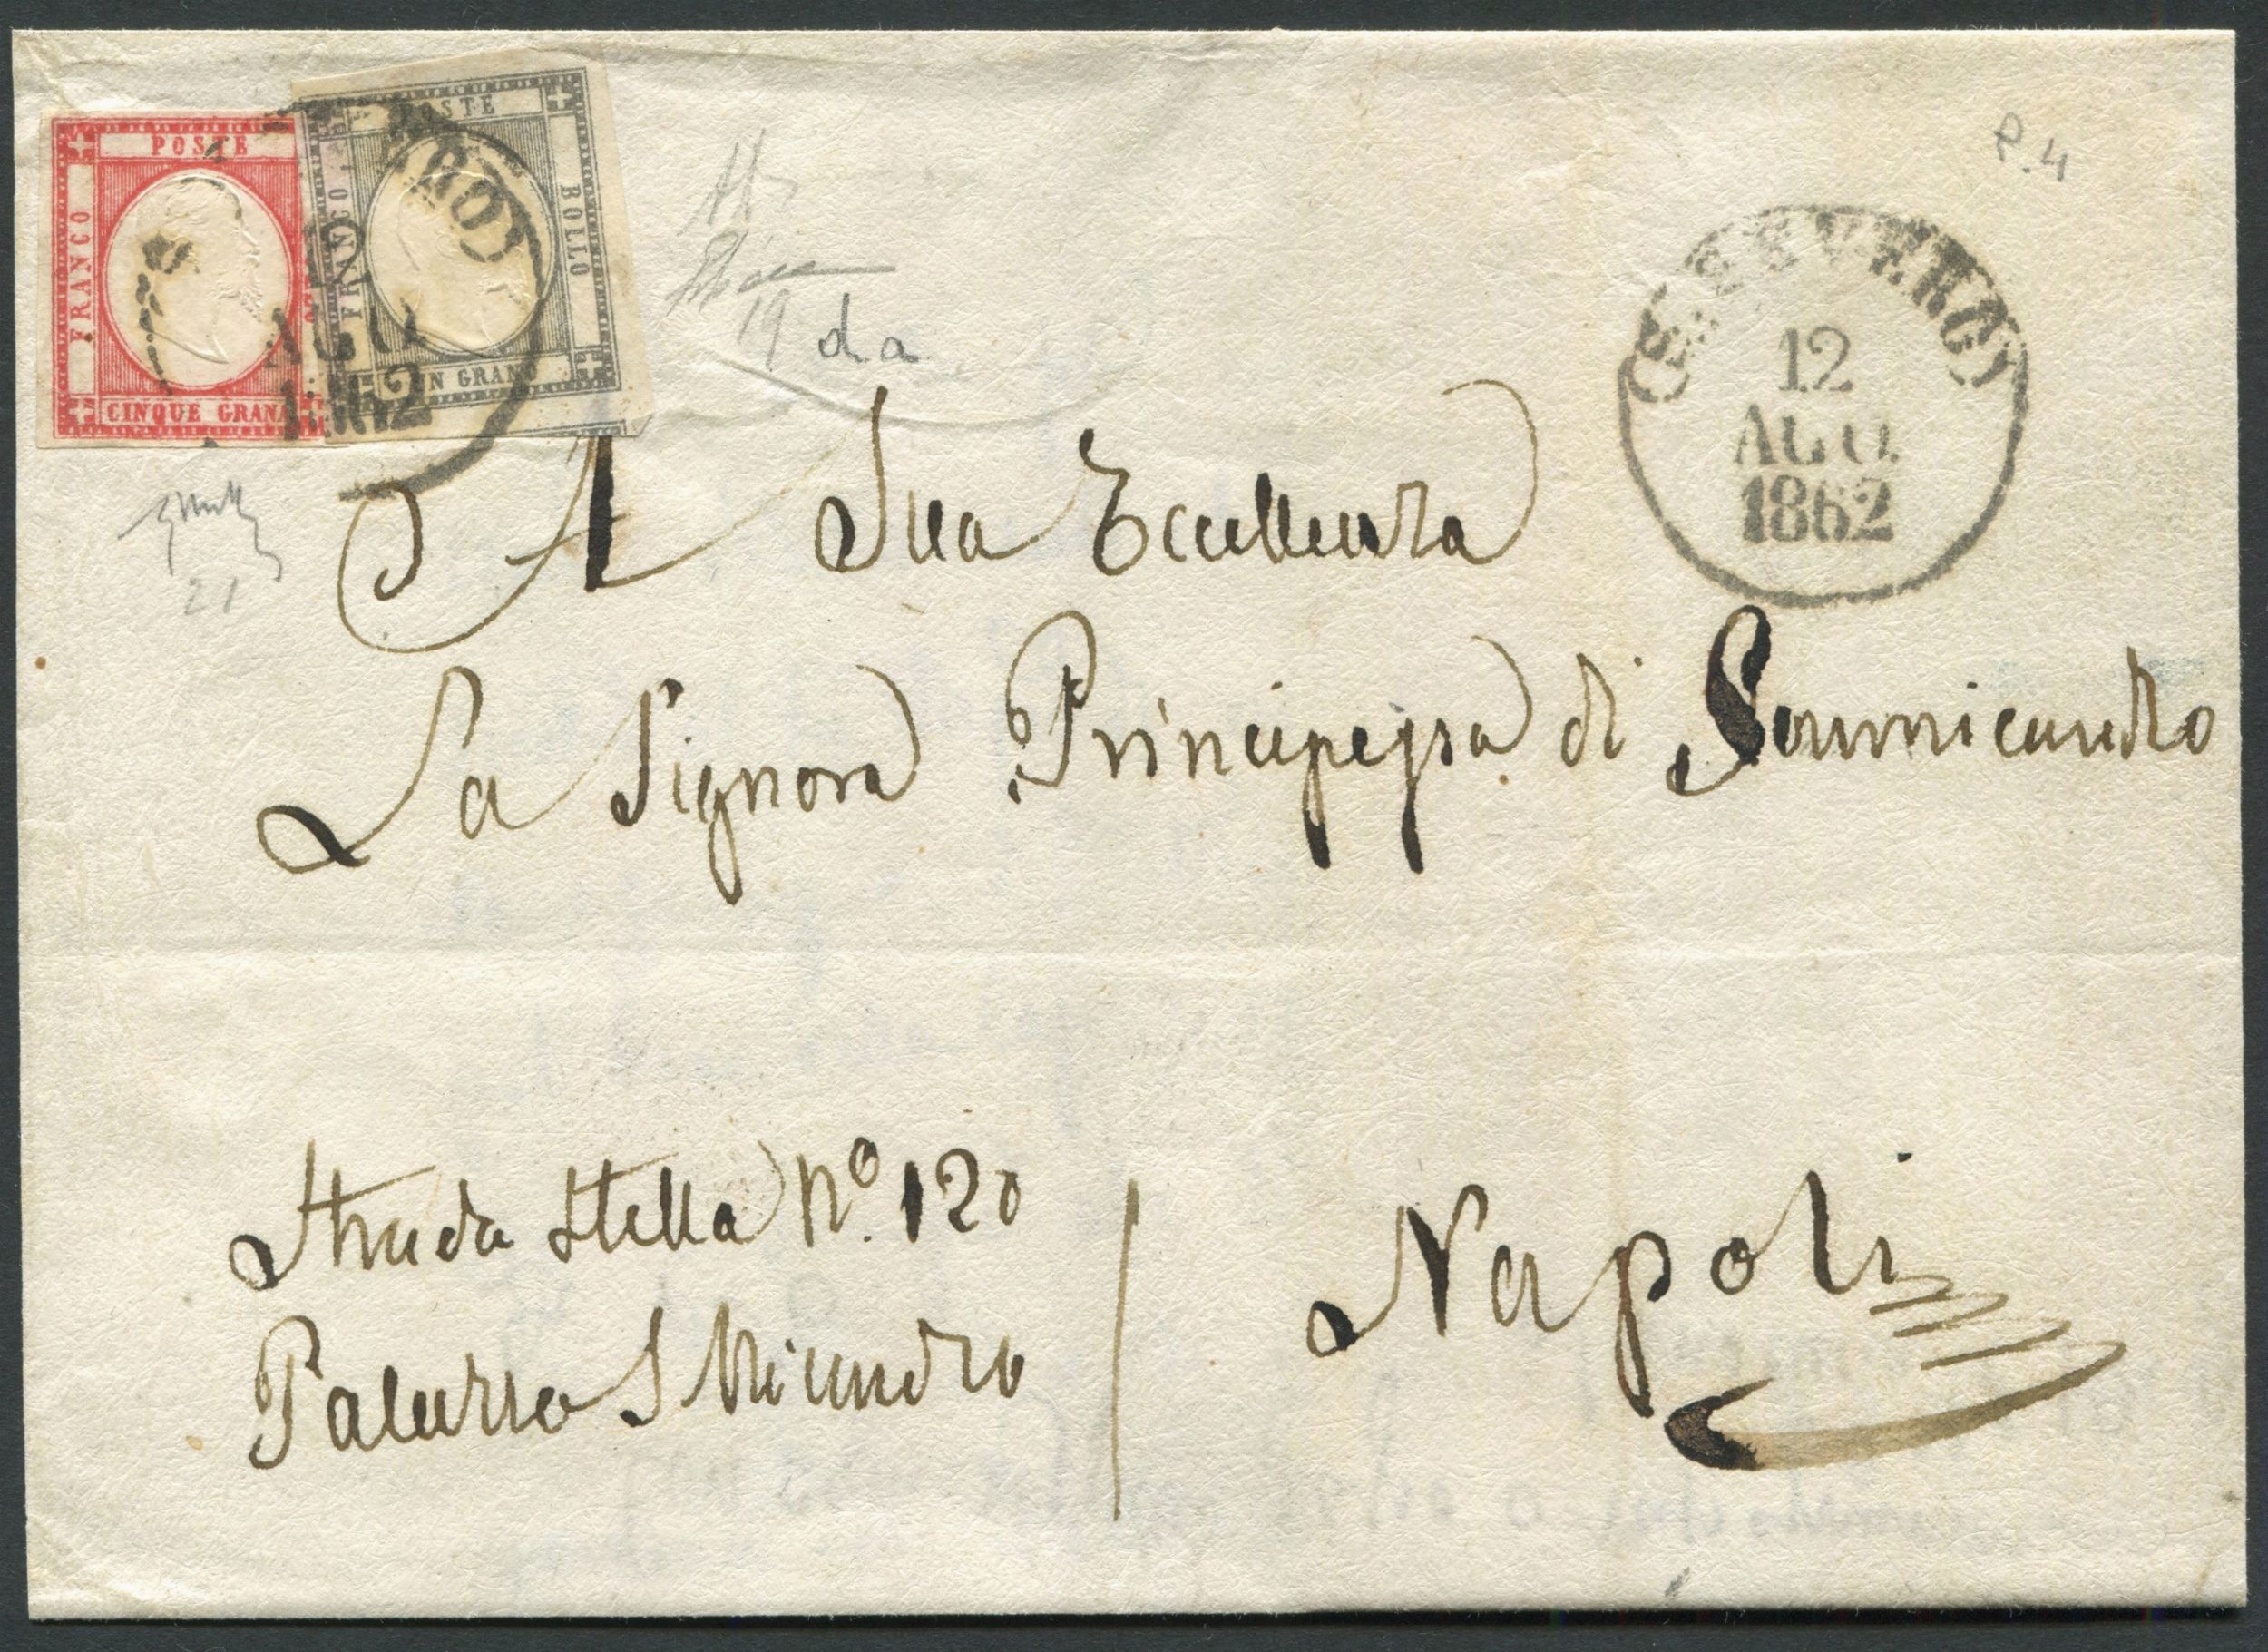 POSTE
FRANCO
CINQUE GRANA
POSTE
FRANCO
BOLLO
UN GRANO
AGO
1862
(S. SEVERO)
12
AGO.
1862
P.4
19
da
21
A Sua Eccellenza
La Signora Principessa di Sannicandro
Strada Stella Nº. 120
Palazzo S Nicandro
Napoli